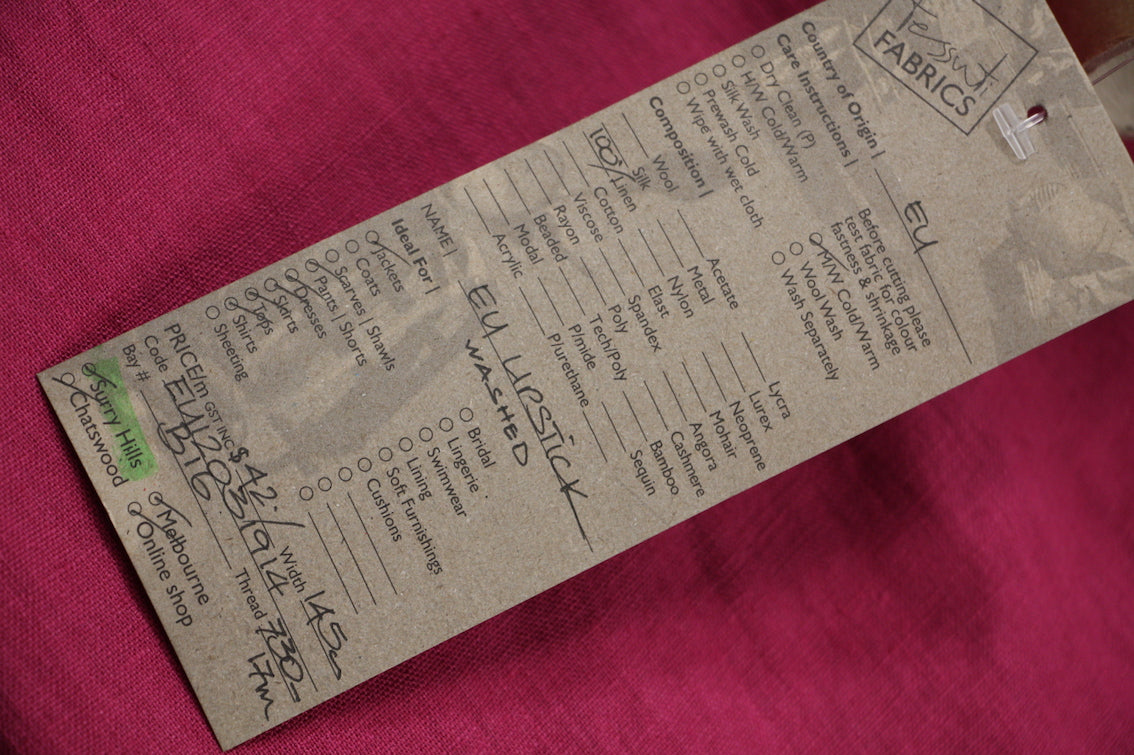 Tessuti
FABRICS
Country of Origin | EU
Care Instructions |
Before cutting please
test fabric for colour
fastness & shrinkage
Dry Clean (P)
H/W Cold/Warm
Silk Wash
Prewash Cold
Wipe with wet cloth
M/W Cold/Warm
Wool Wash
Wash Separately
Composition |
Wool
Silk
100% Linen
Cotton
Viscose
Rayon
Beaded
Modal
Acrylic
Acetate
Metal
Nylon
Elast
Spandex
Poly
Tech/Poly
P/mide
P/urethane
Lycra
Lurex
Neoprene
Mohair
Angora
Cashmere
Bamboo
Sequin
NAME | EU LIPSTICK
WASHED
Ideal For |
Jackets
Coats
Scarves | Shawls
Pants | Shorts
Dresses
Skirts
Tops
Shirts
Sheeting
Bridal
Lingerie
Swimwear
Lining
Soft Furnishings
Cushions
PRICE/m GST INC $42./ Width 145
Code Thread 730-
Bay # B16 1.7m
Surry Hills
Chatswood
Melbourne
Online shop